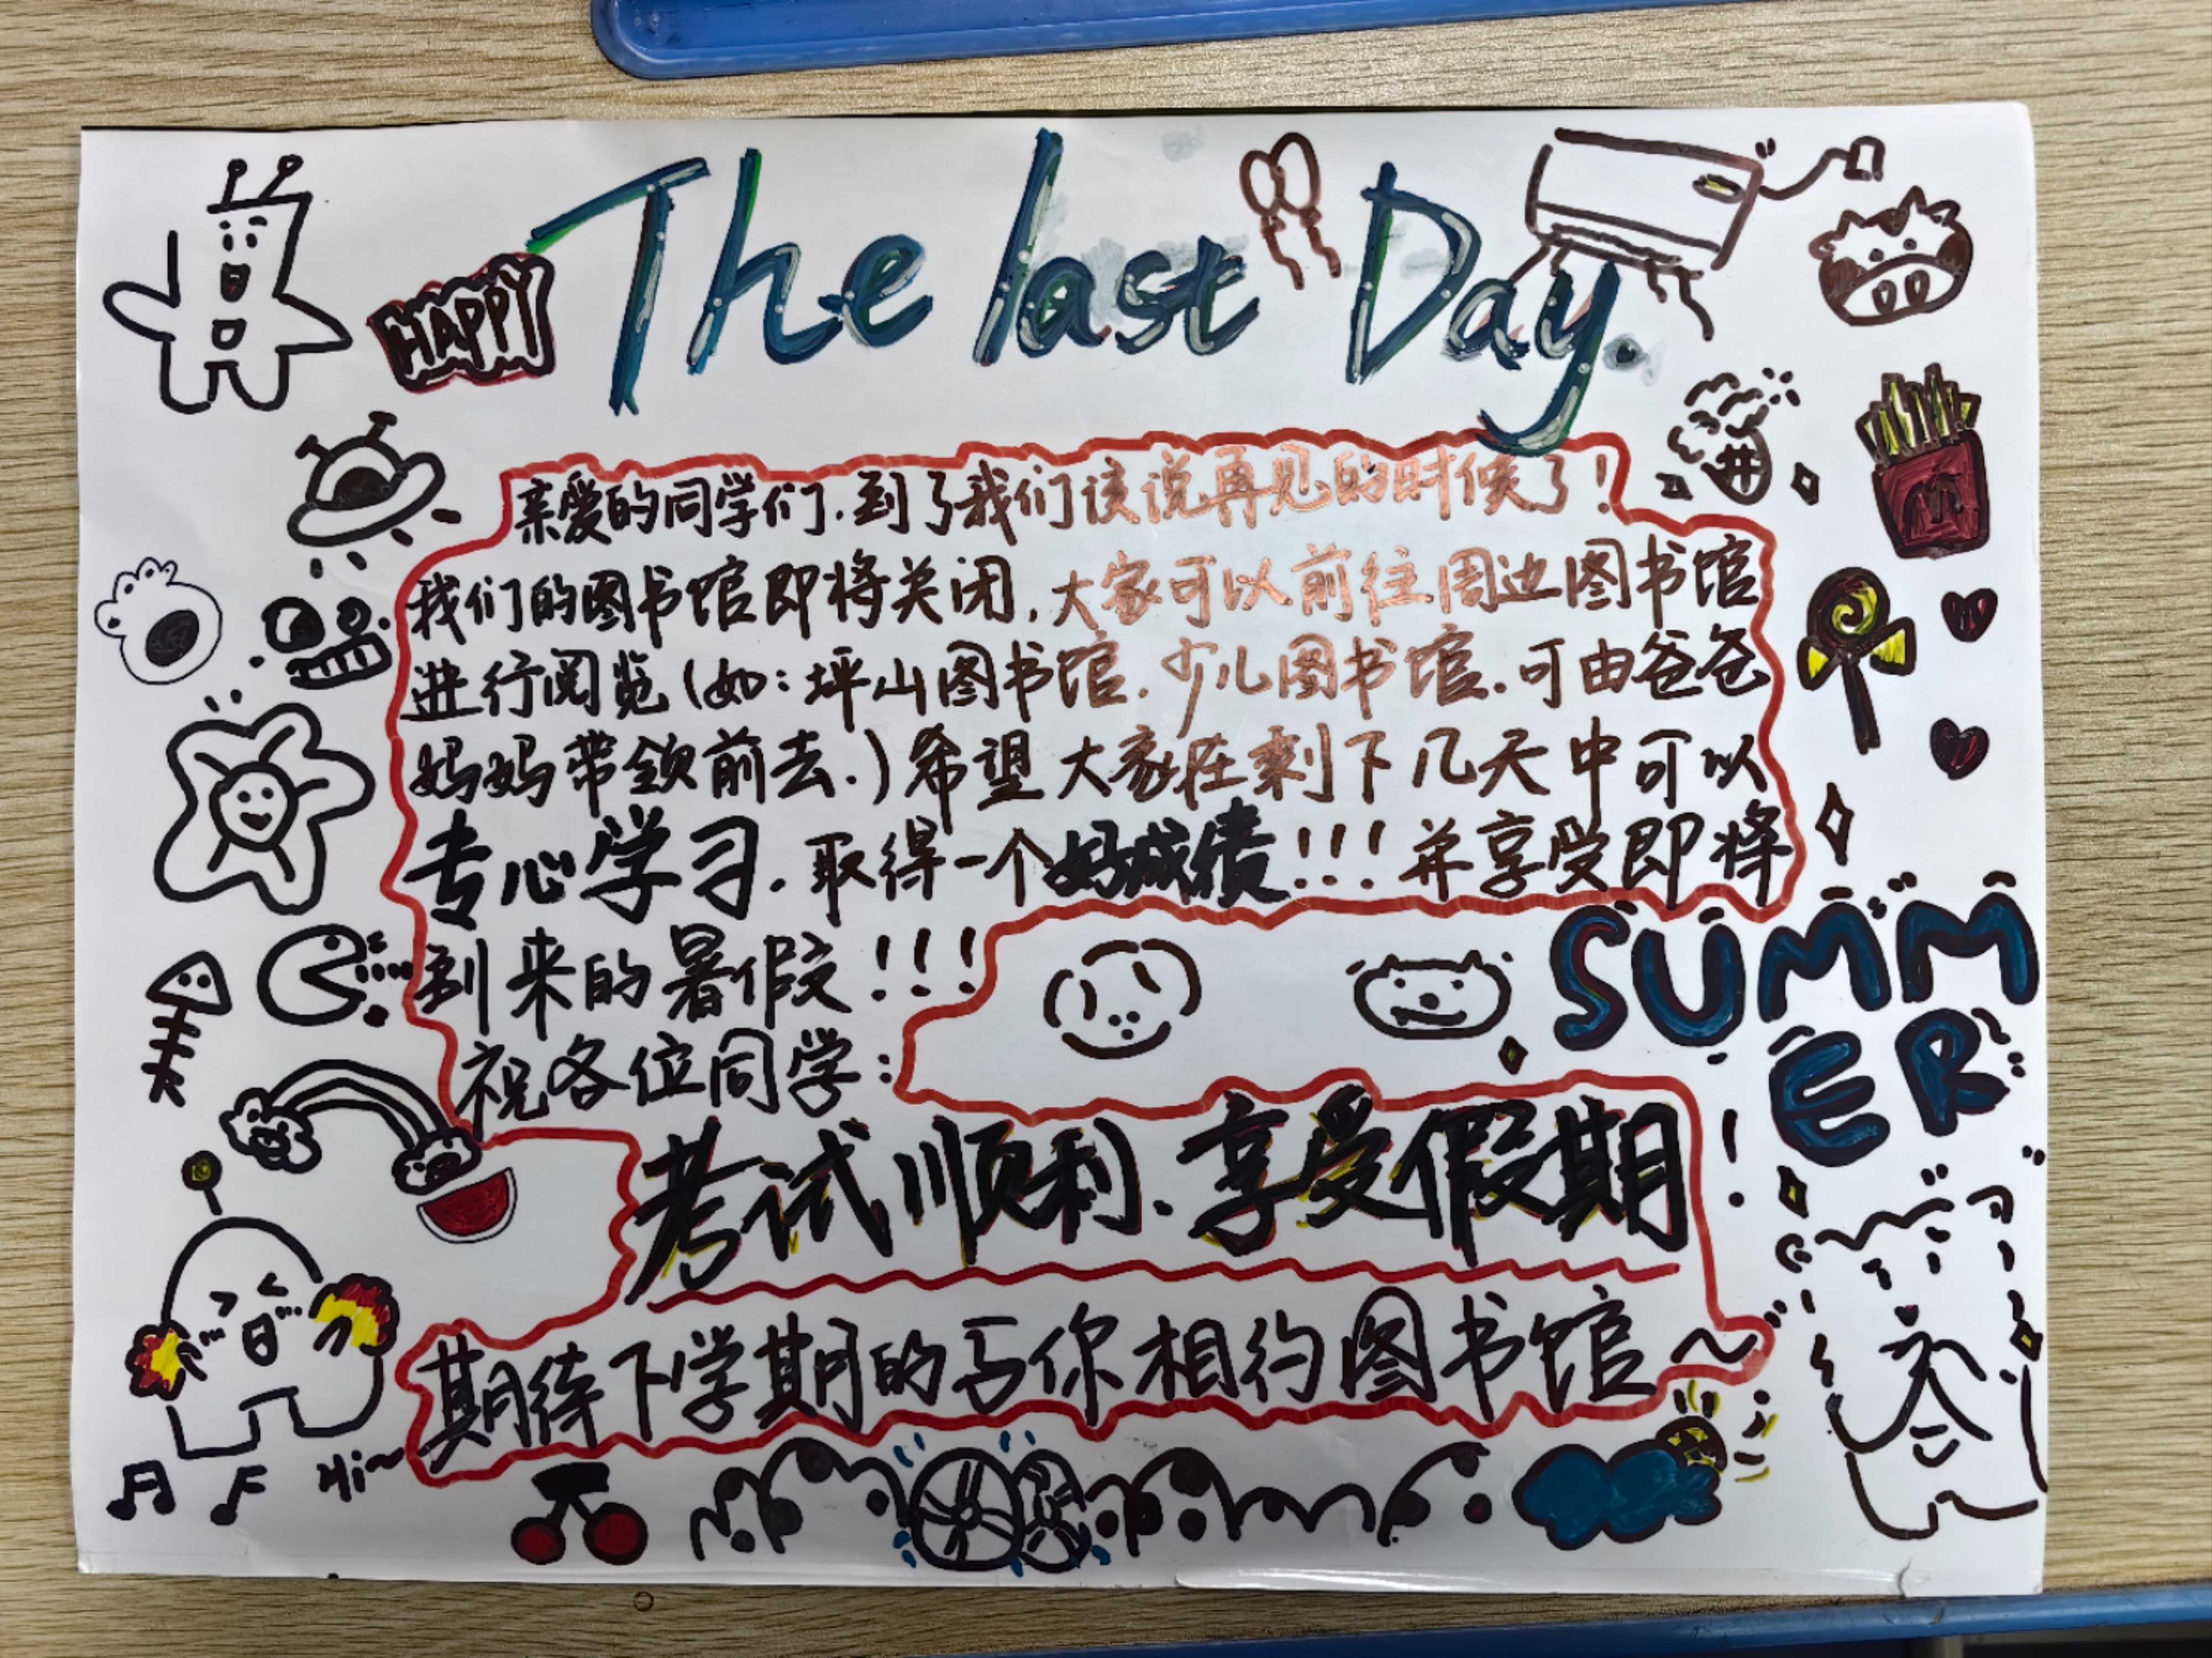 The last Day.
HAPPY
亲爱的同学们.到了我们该说再见的时候了!
我们的图书馆即将关闭,大家可以前往周边图书馆
进行阅览(如:坪山图书馆.少儿图书馆.可由爸爸
妈妈带领前去.)希望大家在剩下几天中可以
专心学习.取得一个好成绩!!!并享受即将
到来的暑假!!!
祝各位同学:
SUMM
ER
考试顺利.享受假期!
期待下学期的与你相约图书馆~
Hi~